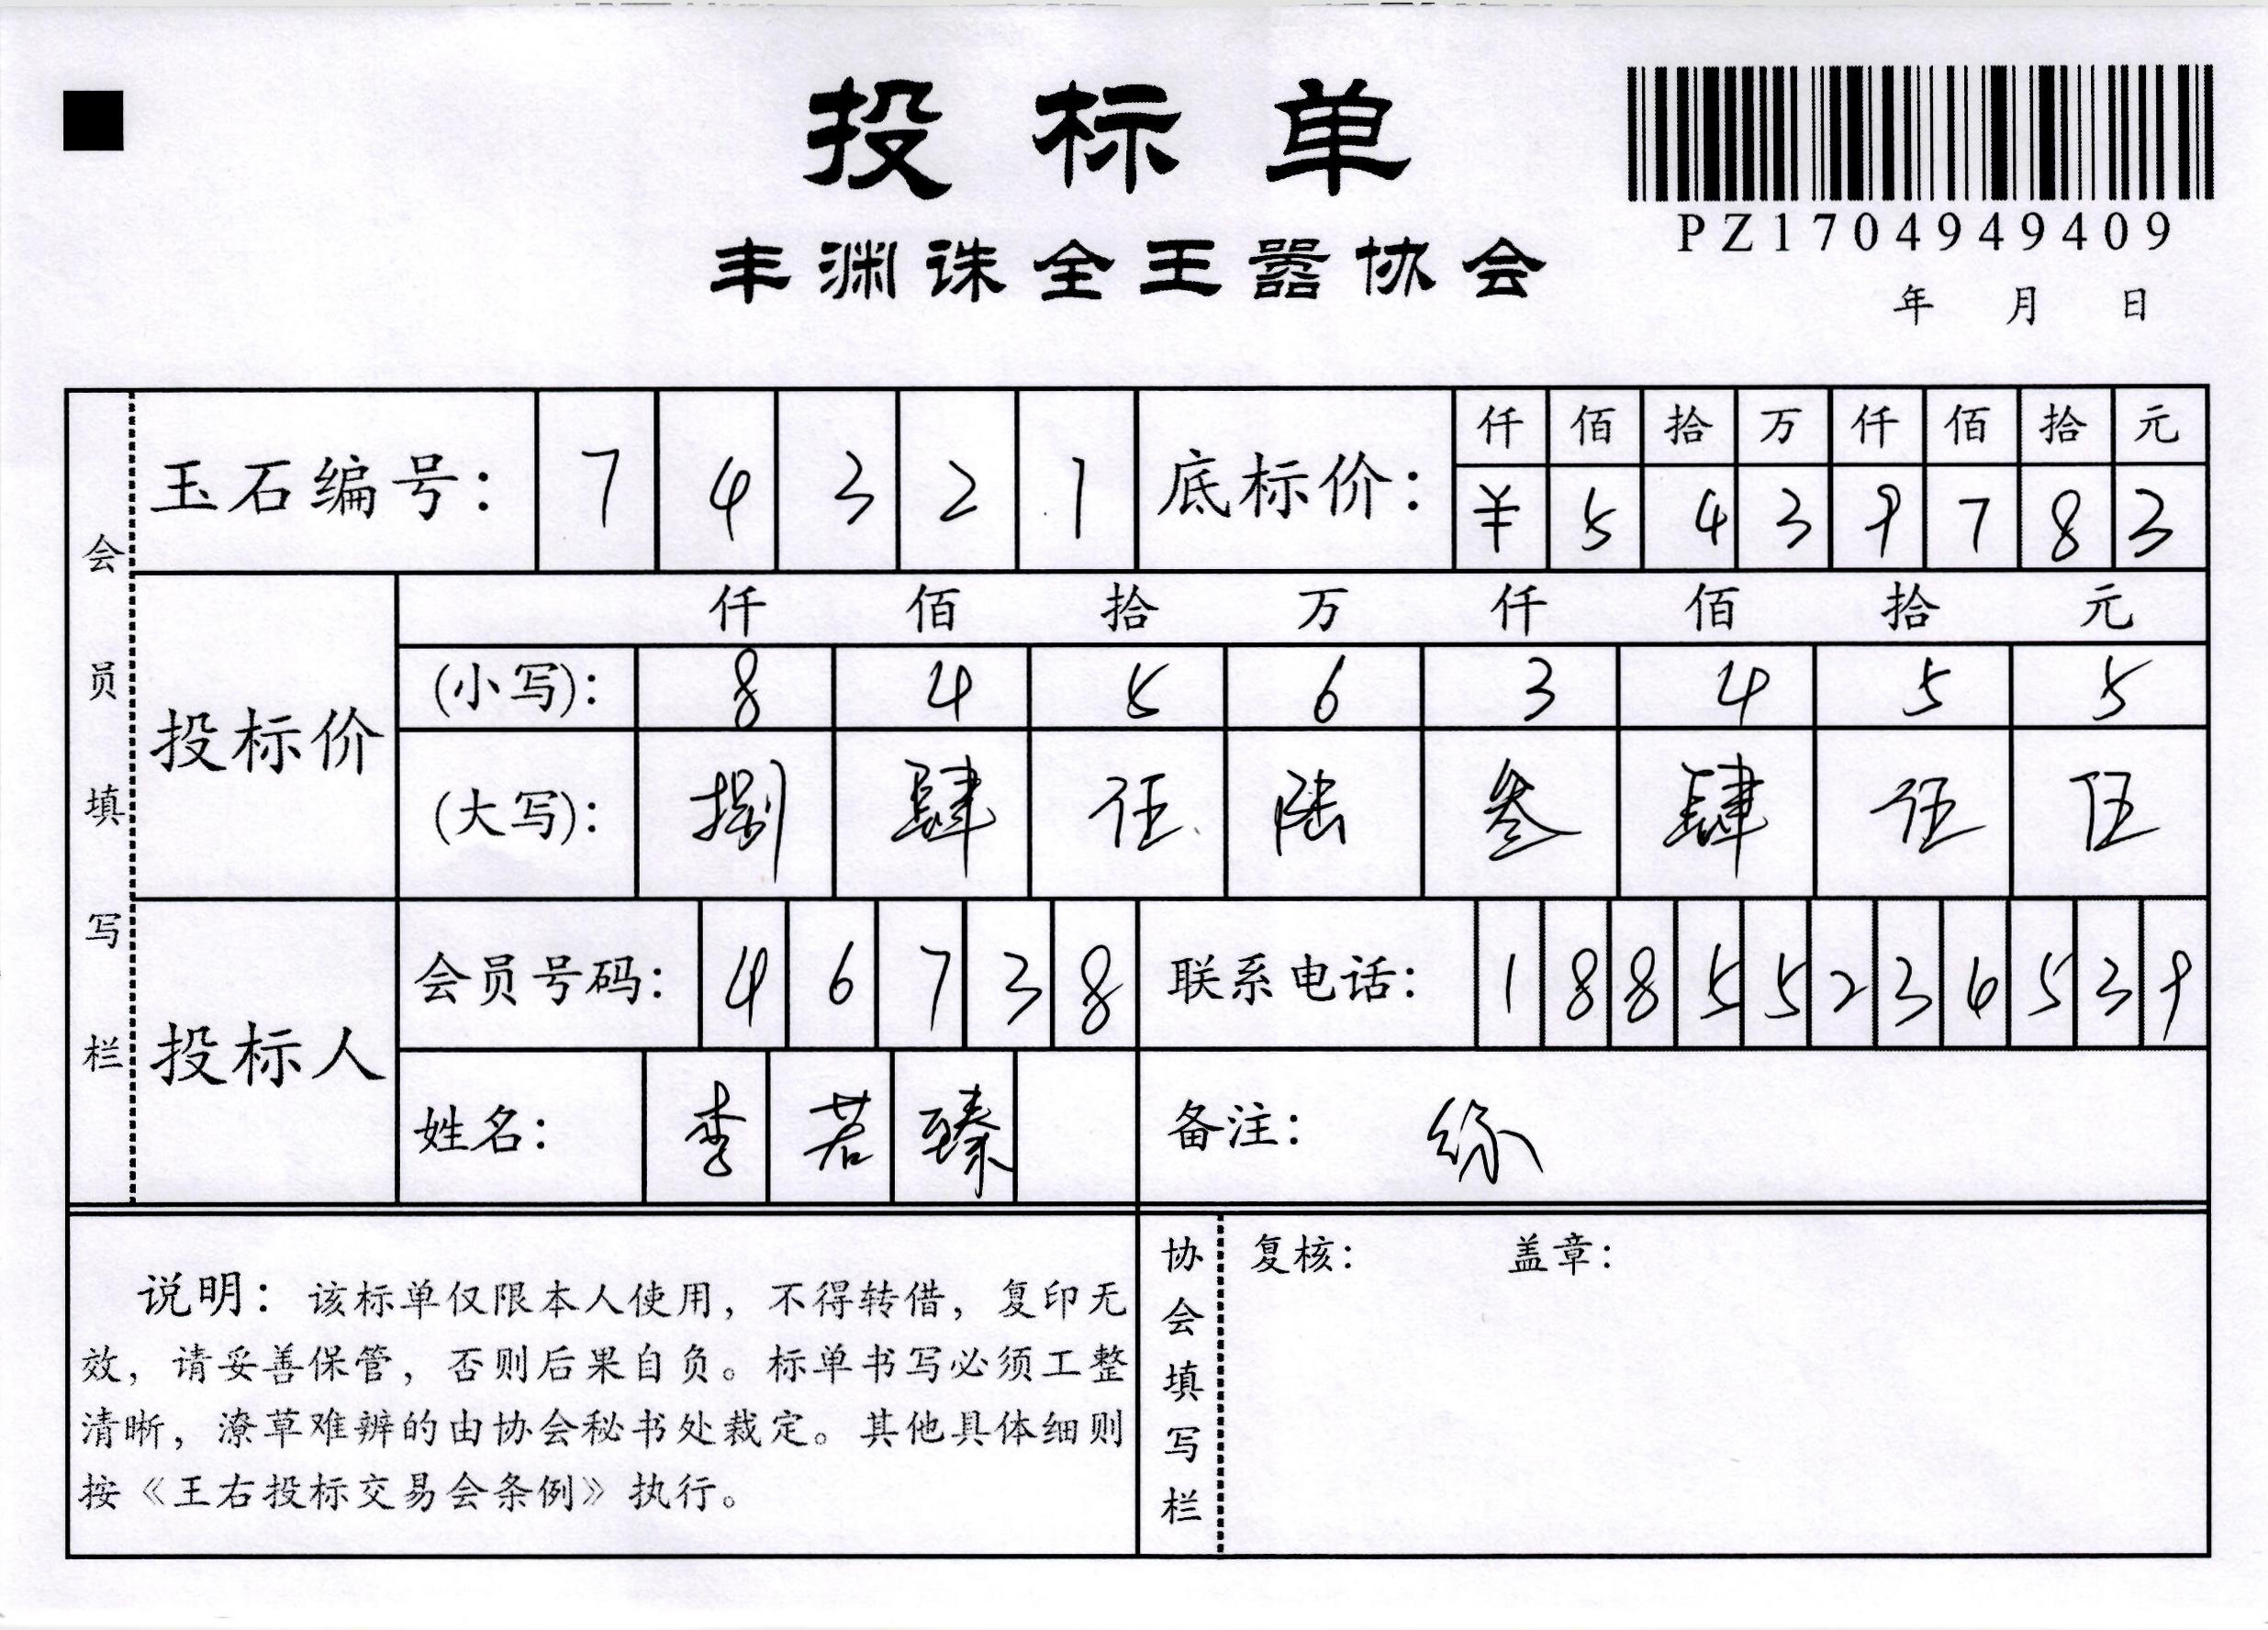 投标单
丰渊诛全王嚣协会
PZ1704949409
年 月 日
会员填写栏
玉石编号： 7 4 3 2 1 底标价： 仟 佰 拾 万 仟 佰 拾 元
¥ 5 4 3 9 7 8 3
投标价
仟 佰 拾 万 仟 佰 拾 元
(小写)： 8 4 5 6 3 4 5 5
(大写)： 捌 肆 伍 陆 叁 肆 伍 伍
投标人
会员号码： 4 6 7 3 8 联系电话： 1 8 8 5 5 2 3 6 5 3 9
姓名： 李 若 臻 备注：
说明：该标单仅限本人使用，不得转借，复印无
效，请妥善保管，否则后果自负。标单书写必须工整
清晰，潦草难辨的由协会秘书处裁定。其他具体细则
按《王右投标交易会条例》执行。
协会填写栏
复核： 盖章：